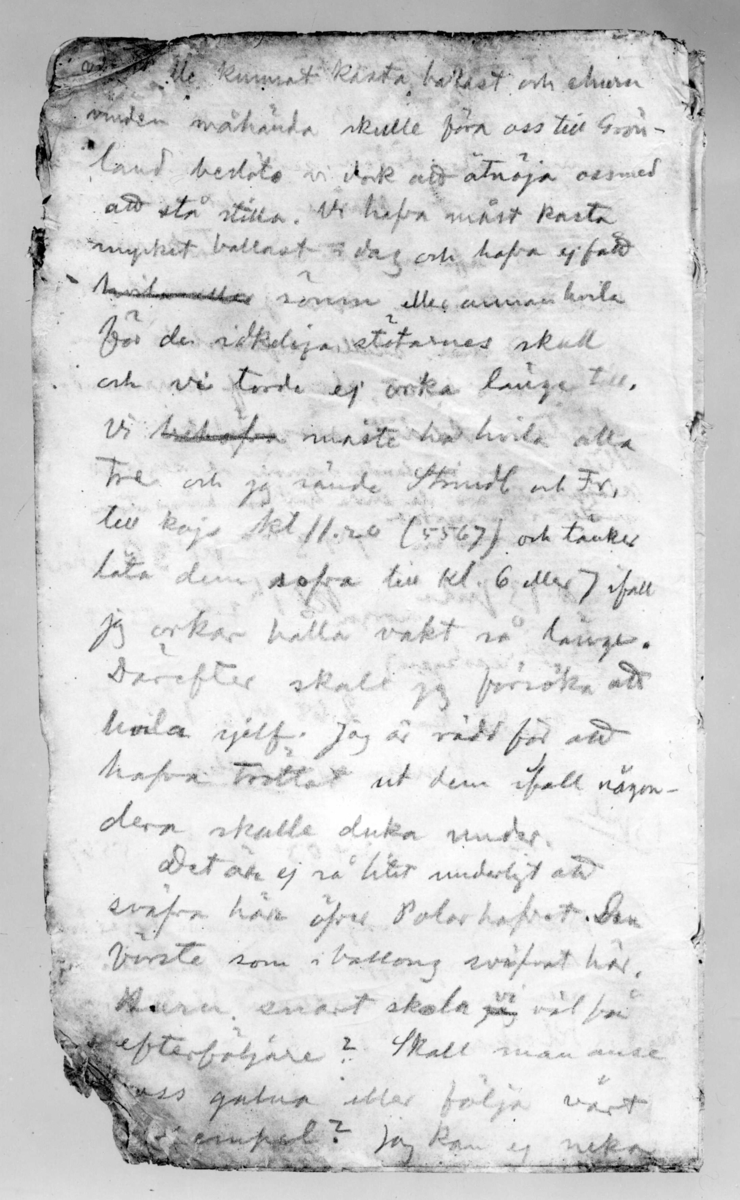 kunnat kasta balast och ehuru
vinden måhända skulle föra oss till Grön-
land beslöto vi dock att åtnöja oss med
att stå stilla. Vi hafva måst kasta
mycket ballast i dag och hafva ej fått
hvila eller sömn eller annan hvila
för de idkeliga stötarnes skull
och vi torde ej orka länge till.
Vi behöfva måste ha hvila alla
tre och jg sände Strindb och Fr.
till kojs kl 11.20 (5567) och tänker
låta dem sofva till kl. 6 eller 7 ifall
jg orkar hålla vakt så länge.
Därefter skall jg försöka att
hvila sjelf. Jag är rädd för att
hafva tröttat ut dem ifall någon-
dera skulle duka under.
Det är ej så litet underligt att
sväfva här öfver Polarhafvet. Den
förste som i ballong sväfvat här.
Huru snart skola vi väl få
efterföljare? Skall man anse
oss galna eller följa vårt
exempel? Jag kan ej neka